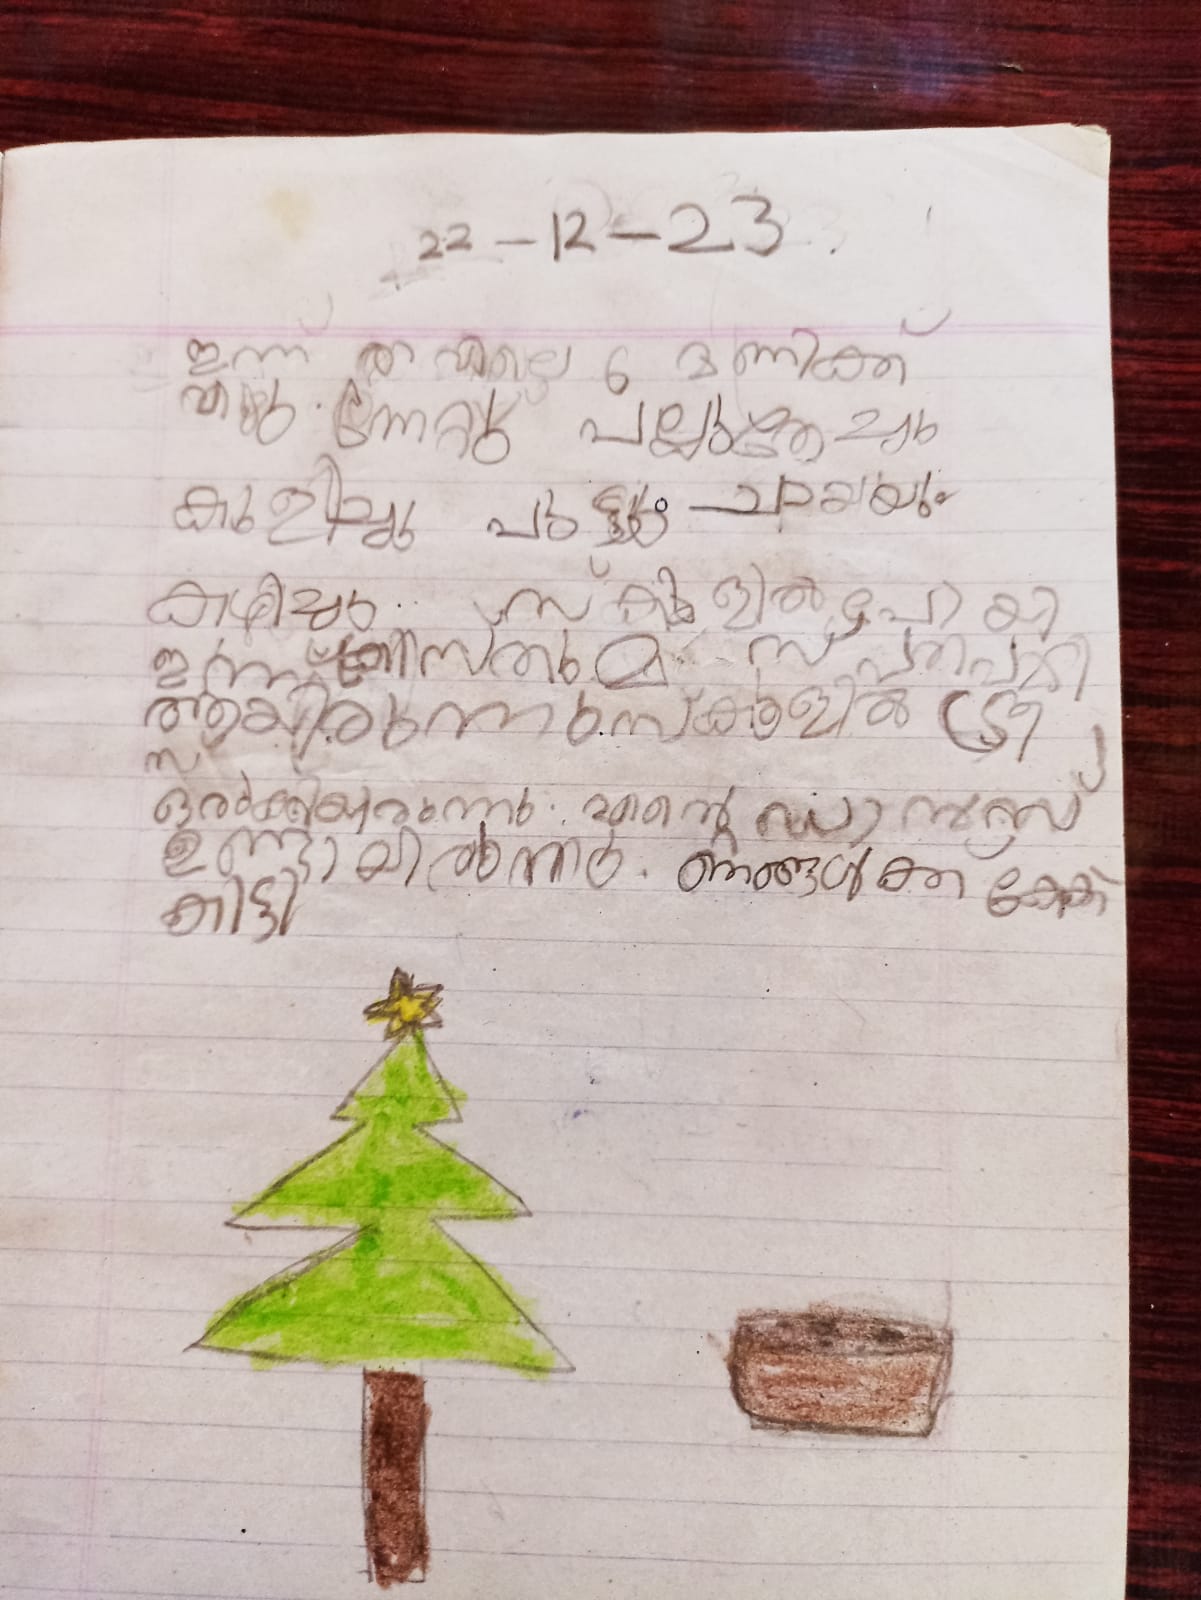 22-12-23
ഇന്ന് രാവിലെ 6 മണിക്ക്
എഴുന്നേറ്റു പല്ലുതേച്ചു
കുളിച്ചു പുട്ടും ചായയും
കഴിച്ചു. സ്കൂളിൽ പോയി
ഇന്ന് ക്രിസ്തുമസ്
ആയിരുന്നു സ്കൂളിൽ ട്രീ
ഒരുക്കിയിരുന്നു. എന്റെ ഡാൻസ്
ഉണ്ടായിരുന്നു. ഞങ്ങൾക്ക് കേക്ക്
കിട്ടി